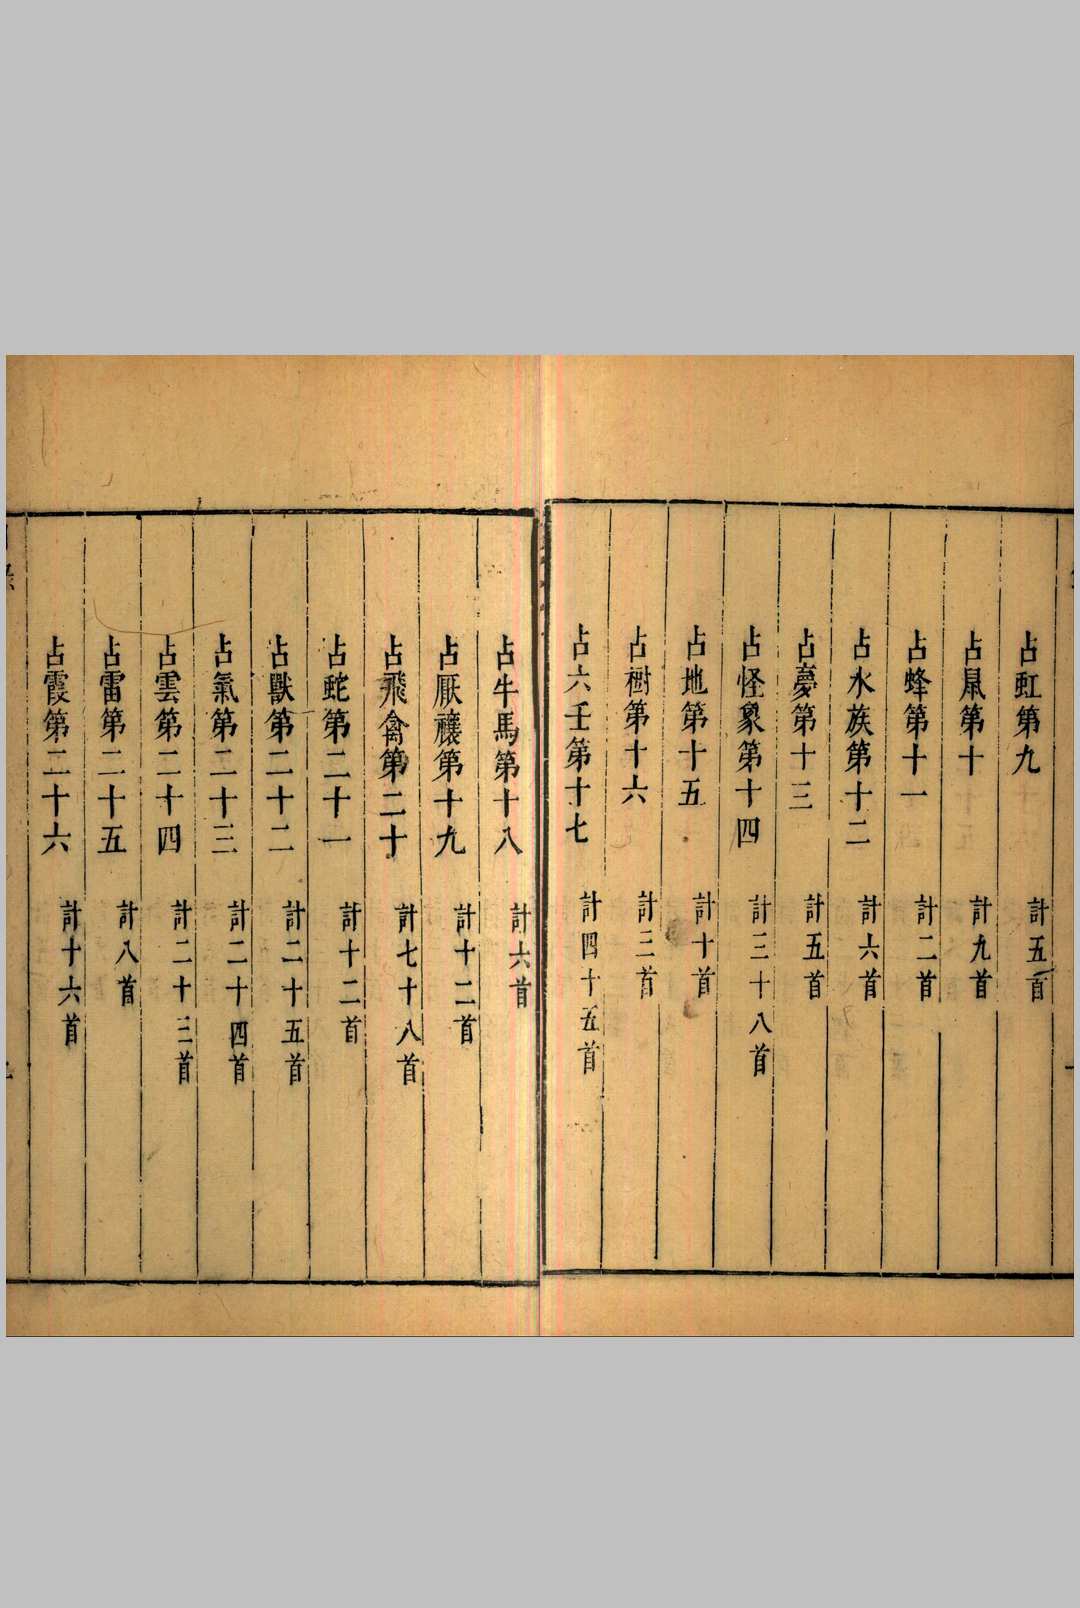 占虹第九 計五首
占鼠第十 計九首
占蜂第十一 計二首
占水族第十二 計六首
占夢第十三 計五首
占怪象第十四 計三十八首
占地第十五 計十首
占樹第十六 計三首
占六壬第十七 計四十五首
占牛馬第十八 計六首
占厭禳第十九 計十二首
占飛禽第二十 計七十八首
占蛇第二十一 計十二首
占獸第二十二 計二十五首
占氣第二十三 計二十四首
占雲第二十四 計二十三首
占雷第二十五 計八首
占霞第二十六 計十六首